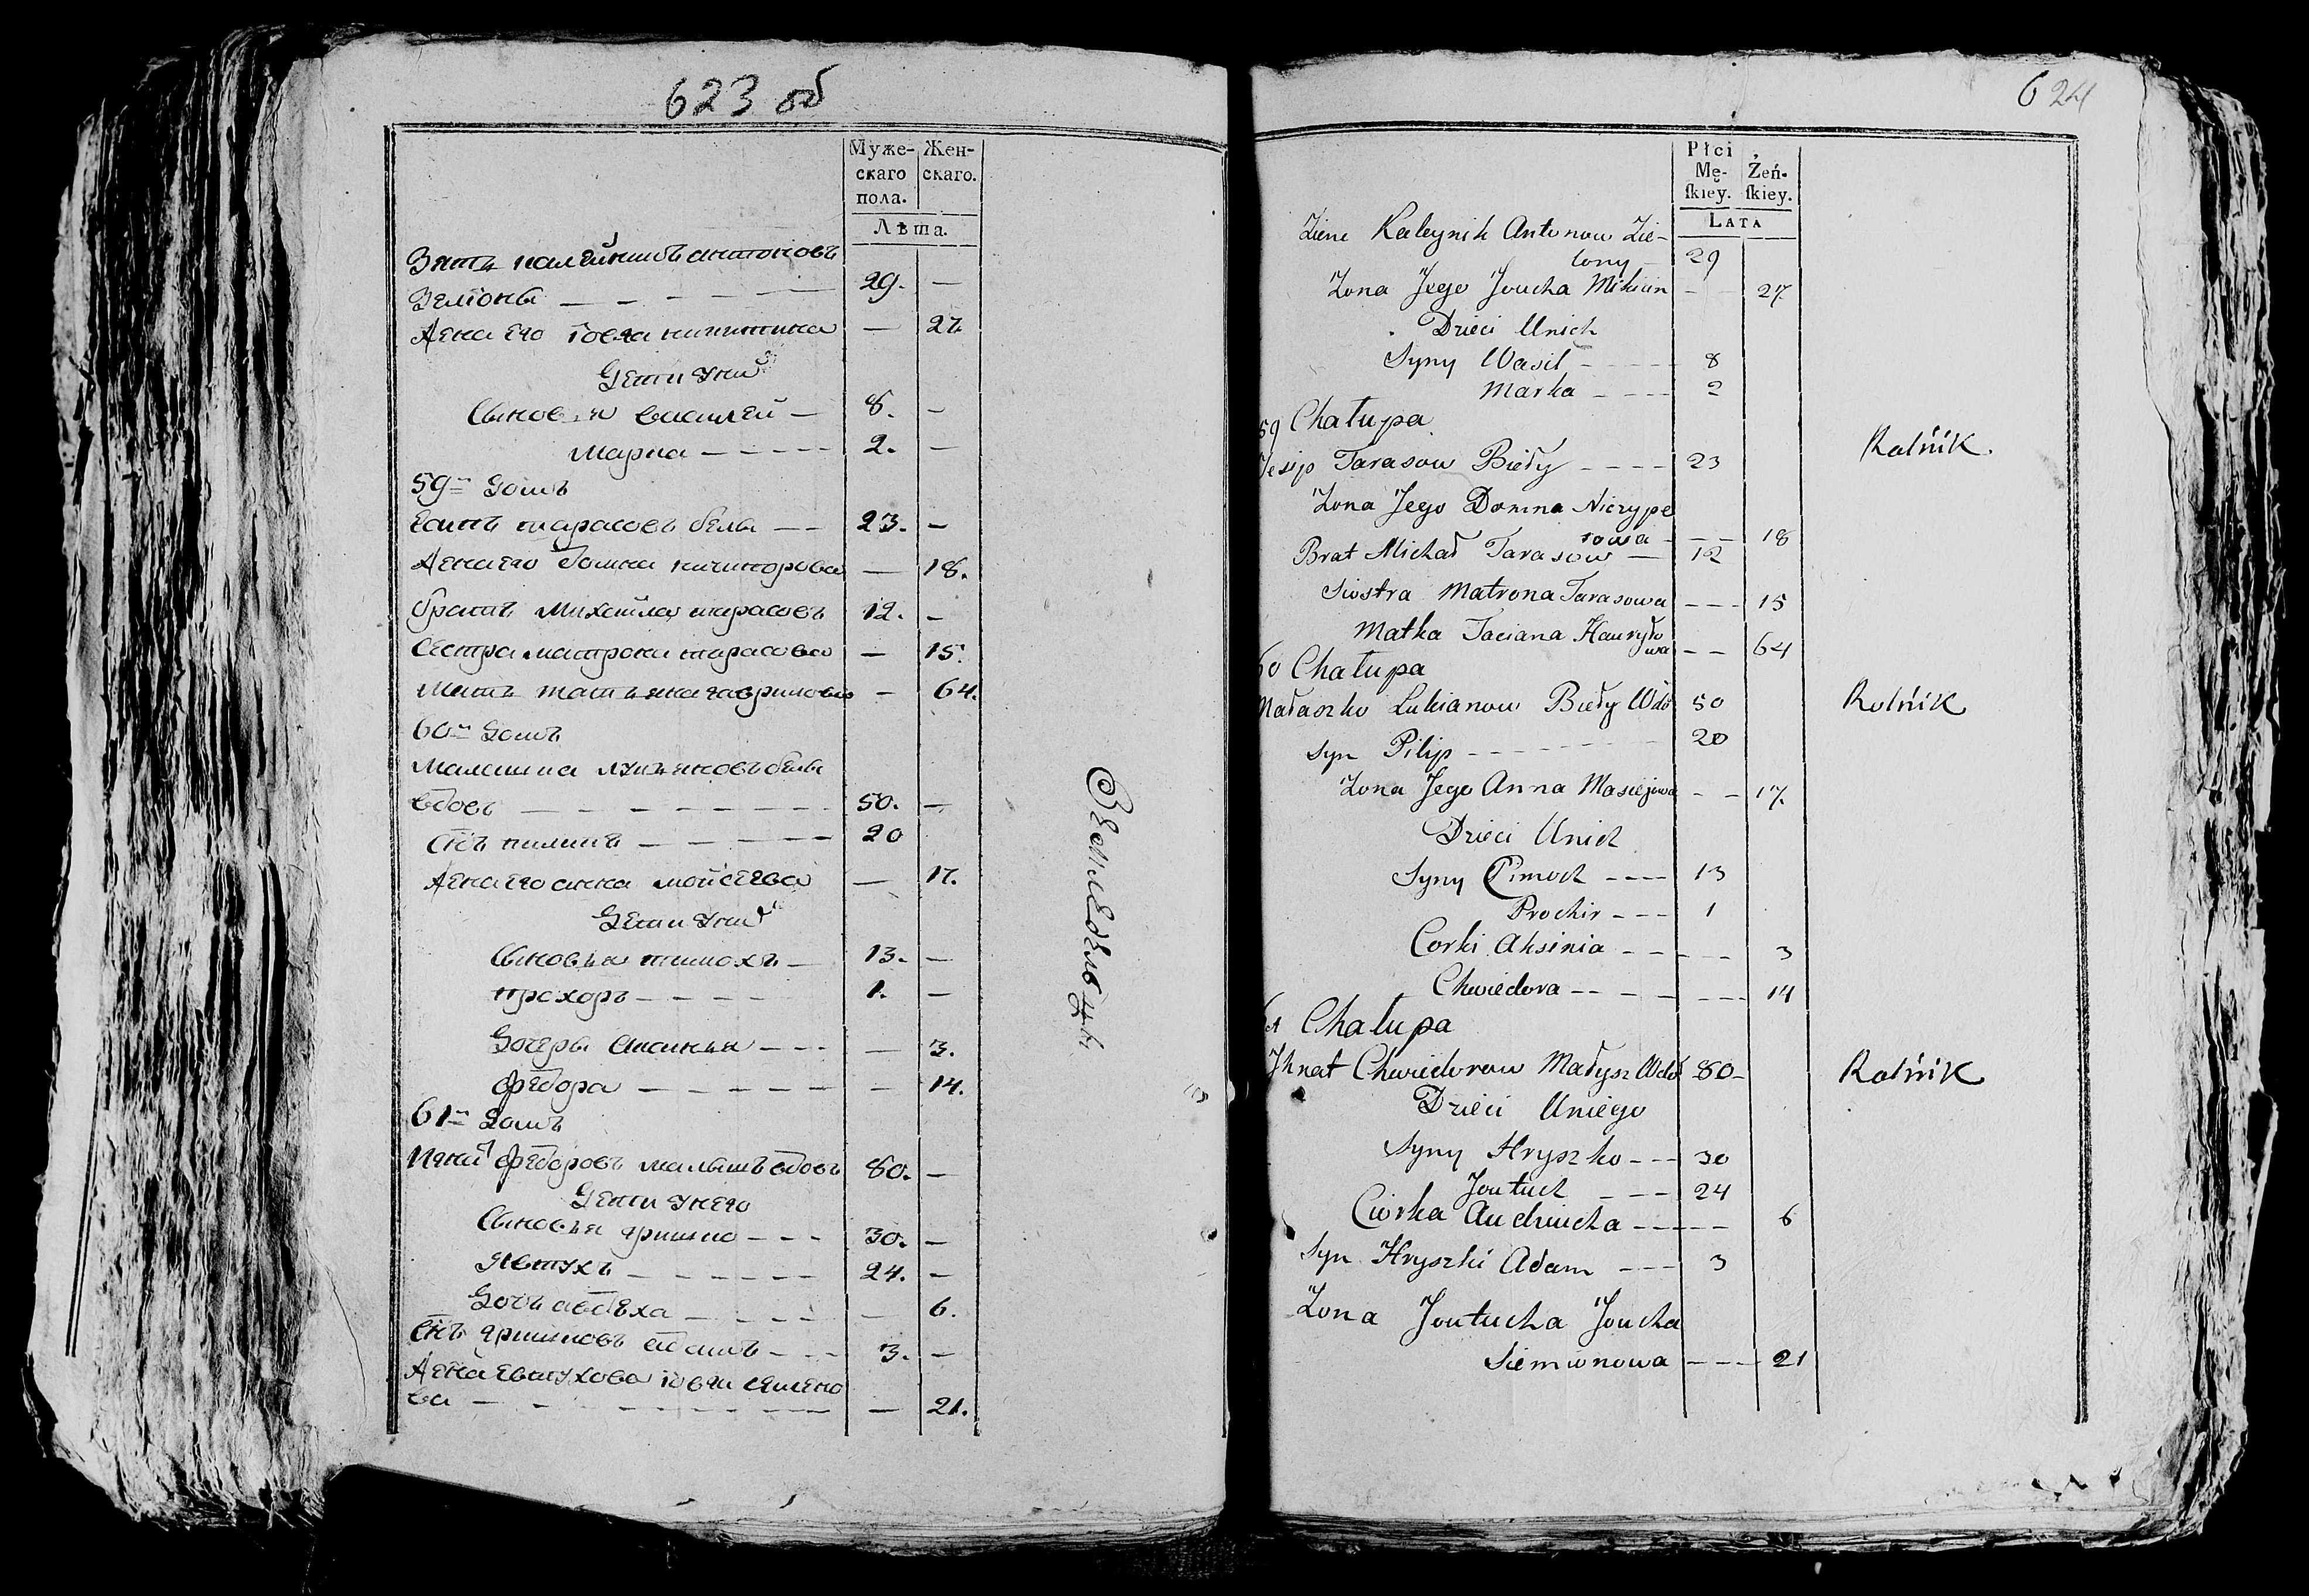 623 об
Муже-
скаго
пола.
Жен-
скаго.
Лѣта.
Зять калейникъ антоновъ
Зелюны — 29. —
Жена его Iовга никитина — 27.
Дети у них
Сыновья василей — 8. —
Марка — 2. —
59й Домъ
Есипъ тарасовъ белы — 23. —
Жена его Домна ничипорова — 18.
братъ Михайла тарасовъ 12. —
Сестра матрона тарасова — 15.
Мать татьяна гаврилова — 64.
60й Домъ
Малашка лукьяновъ белы
вдовъ — 50. —
Снъ пилипъ — 20
Жена его анна мойсеева — 17.
Дети у них
Сыновья тимохъ — 13. —
прохоръ — 1. —
Дочери аксинья — 3.
федора — 14.
61й Домъ
Игнат федоровъ малышъ вдовъ 80. —
Дети у него
Сыновья гришко — 30. —
Явтухъ — 24. —
Дочь авдеха — 6.
Снъ гришковъ адамъ — 3. —
Жена явтухова Iовга семено
ва — 21.
Земледѣльцы
624
Płci
Mę-
ſkiey.
Żeń-
ſkiey.
LATA
Zienc Kaleynik Antonow Zie-
lony — 29
Żona Jego Joucha Mikicin — 27.
Dzieci Unich
Syny Wasil — 8
Marka — 2
59 Chałupa
Jesip Tarasow Bieły — 23
Rolnik.
Żona Jego Domna Niczype
rowa — 18
Brat Michał Tarasow — 12
Siostra Matrona Tarasowa — 15
Matka Taciana Hauryło
wa — 64
60 Chałupa
Małaszko Lukianow Bieły Wdo 50
Rolnik
Syn Pilip — 20
Żona Jego Anna Masiejowa — 17.
Dzieci Unich
Syny Cimoch — 13
Prochir — 1
Corki Aksinia — 3
Chwiedora — 14
61 Chałupa
Jhnat Chwiedorow Małysz Wdo 80 —
Rolnik
Dzieci Uniego
Syny Hryszko — 30
Joutuch — 24
Ciorka Audziucha — 6
Syn Hryszki Adam — 3
Żona Joutucha Joucha
Siemionowa — 21